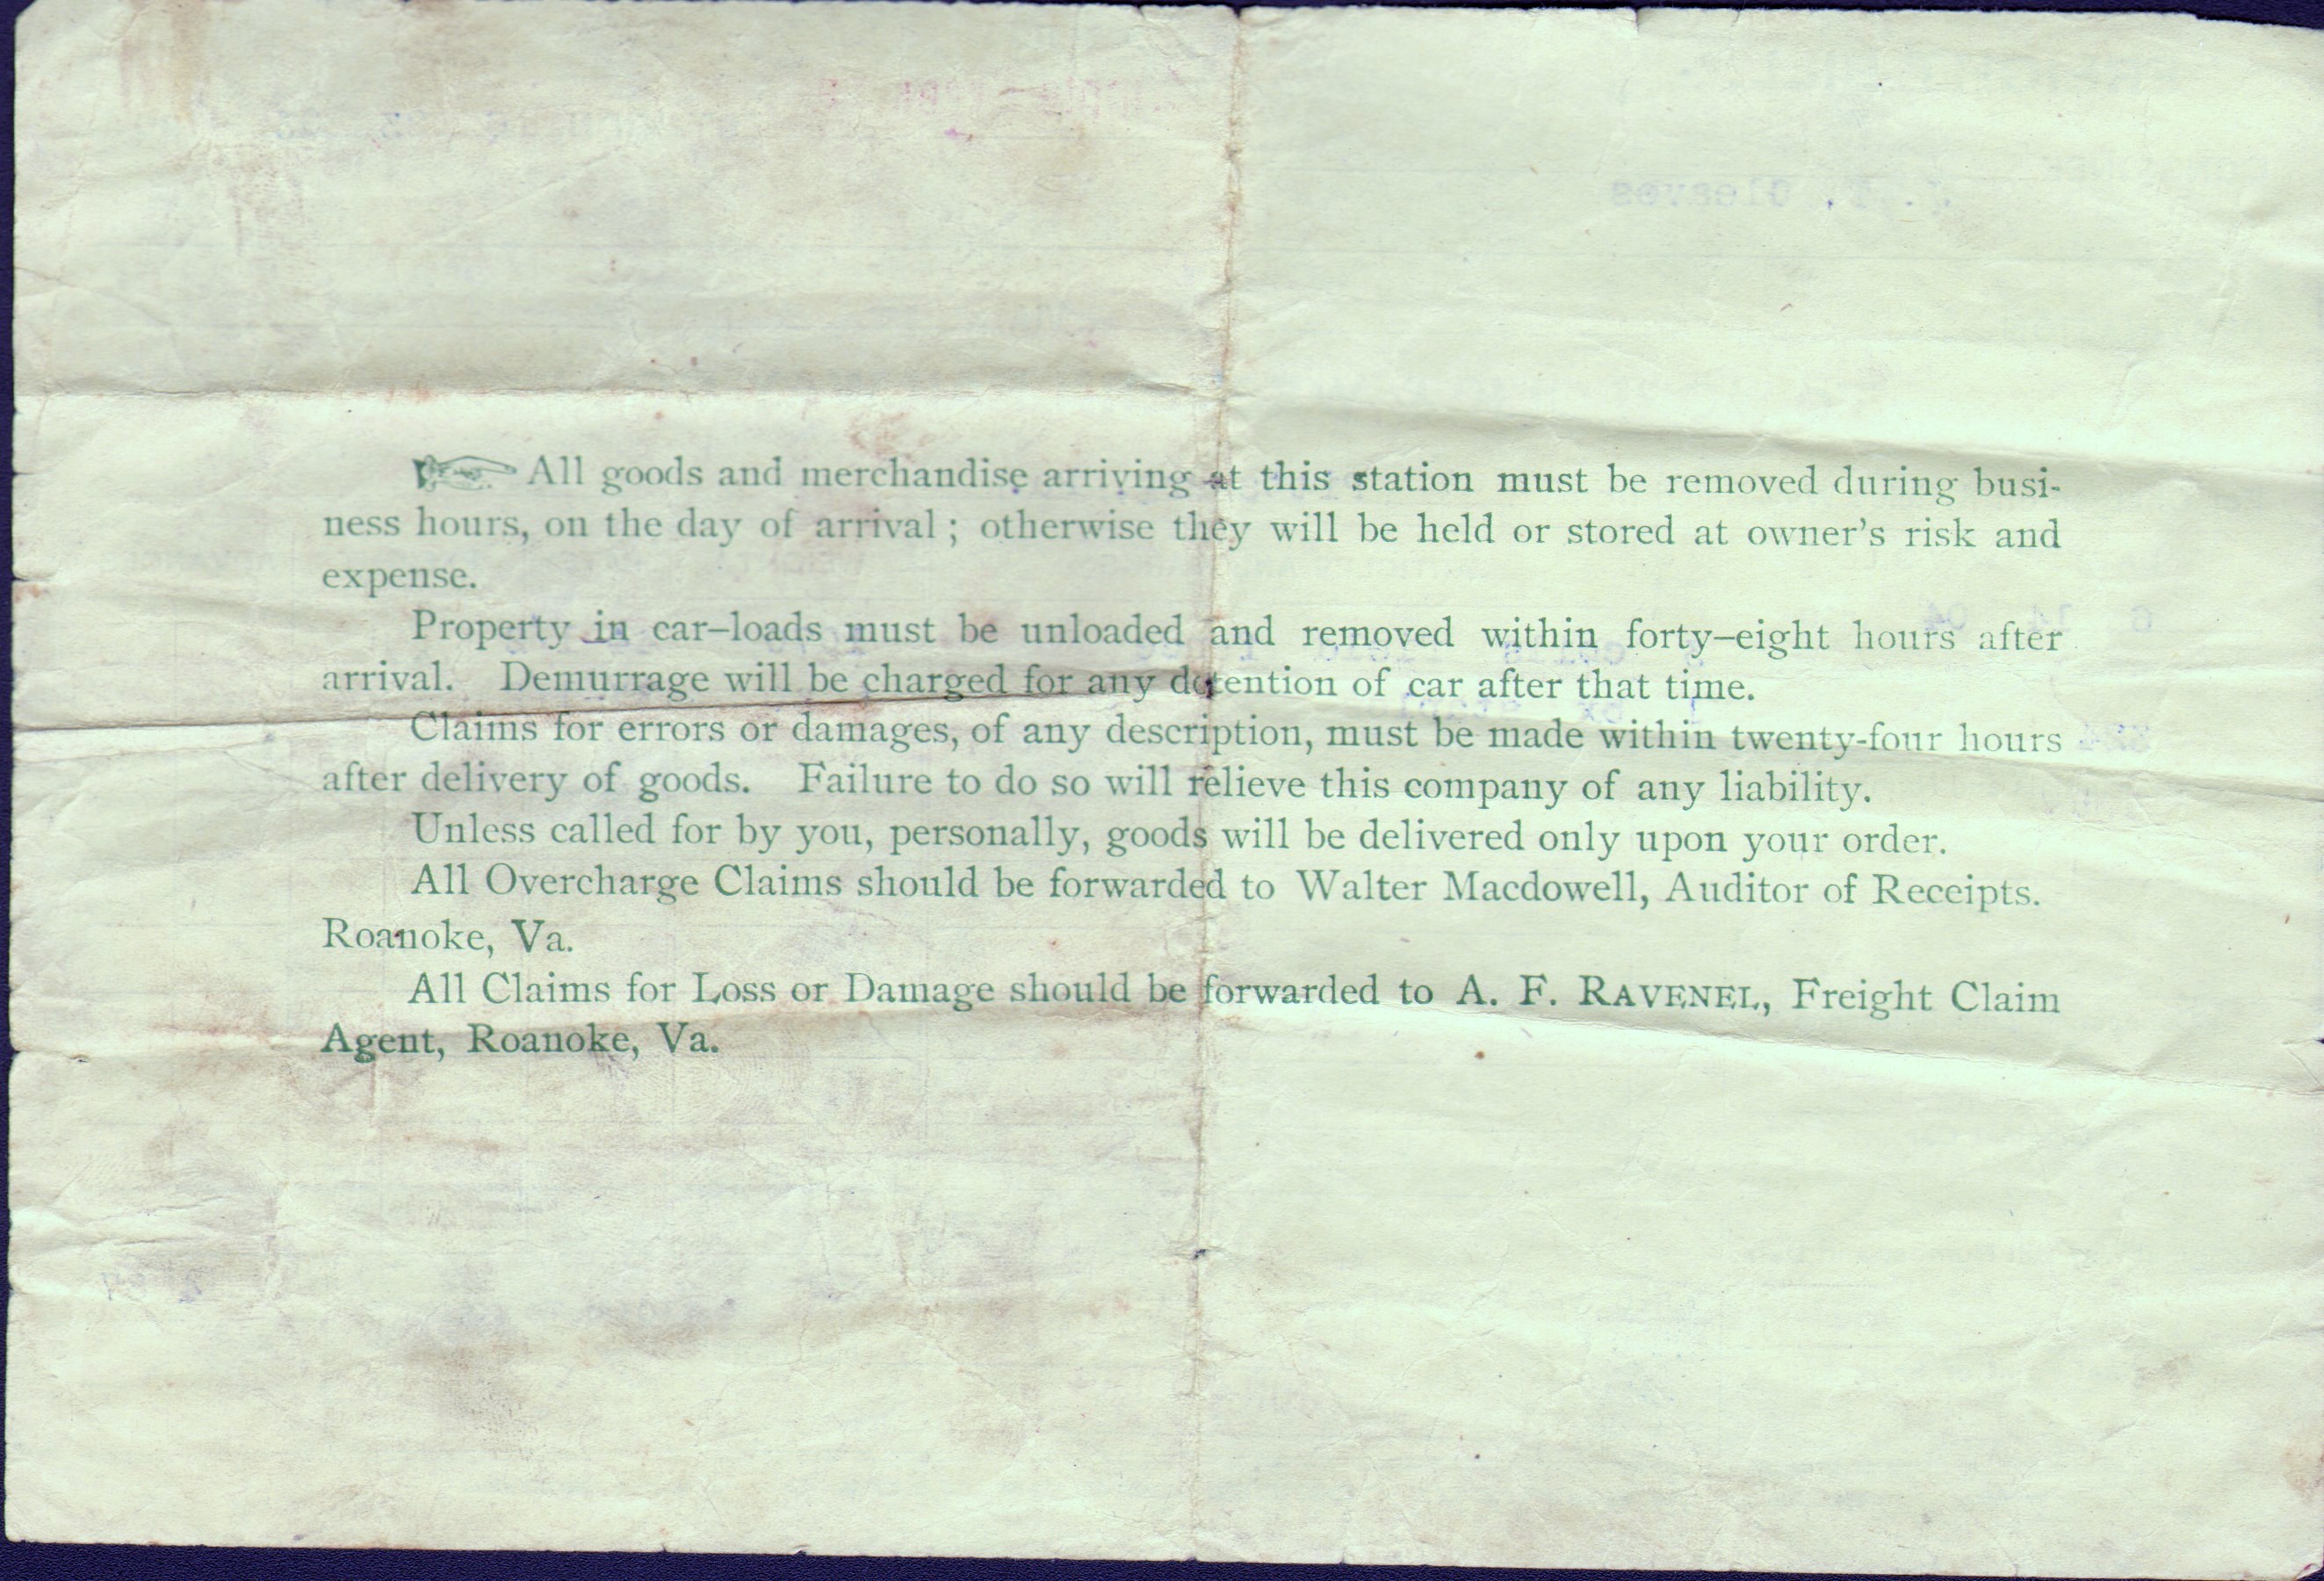 ☞ All goods and merchandise arriving at this station must be removed during busi-
ness hours, on the day of arrival ; otherwise they will be held or stored at owner's risk and
expense.
Property in car–loads must be unloaded and removed within forty–eight hours after
arrival. Demurrage will be charged for any detention of car after that time.
Claims for errors or damages, of any description, must be made within twenty-four hours
after delivery of goods. Failure to do so will relieve this company of any liability.
Unless called for by you, personally, goods will be delivered only upon your order.
All Overcharge Claims should be forwarded to Walter Macdowell, Auditor of Receipts.
Roanoke, Va.
All Claims for Loss or Damage should be forwarded to A. F. RAVENEL, Freight Claim
Agent, Roanoke, Va.